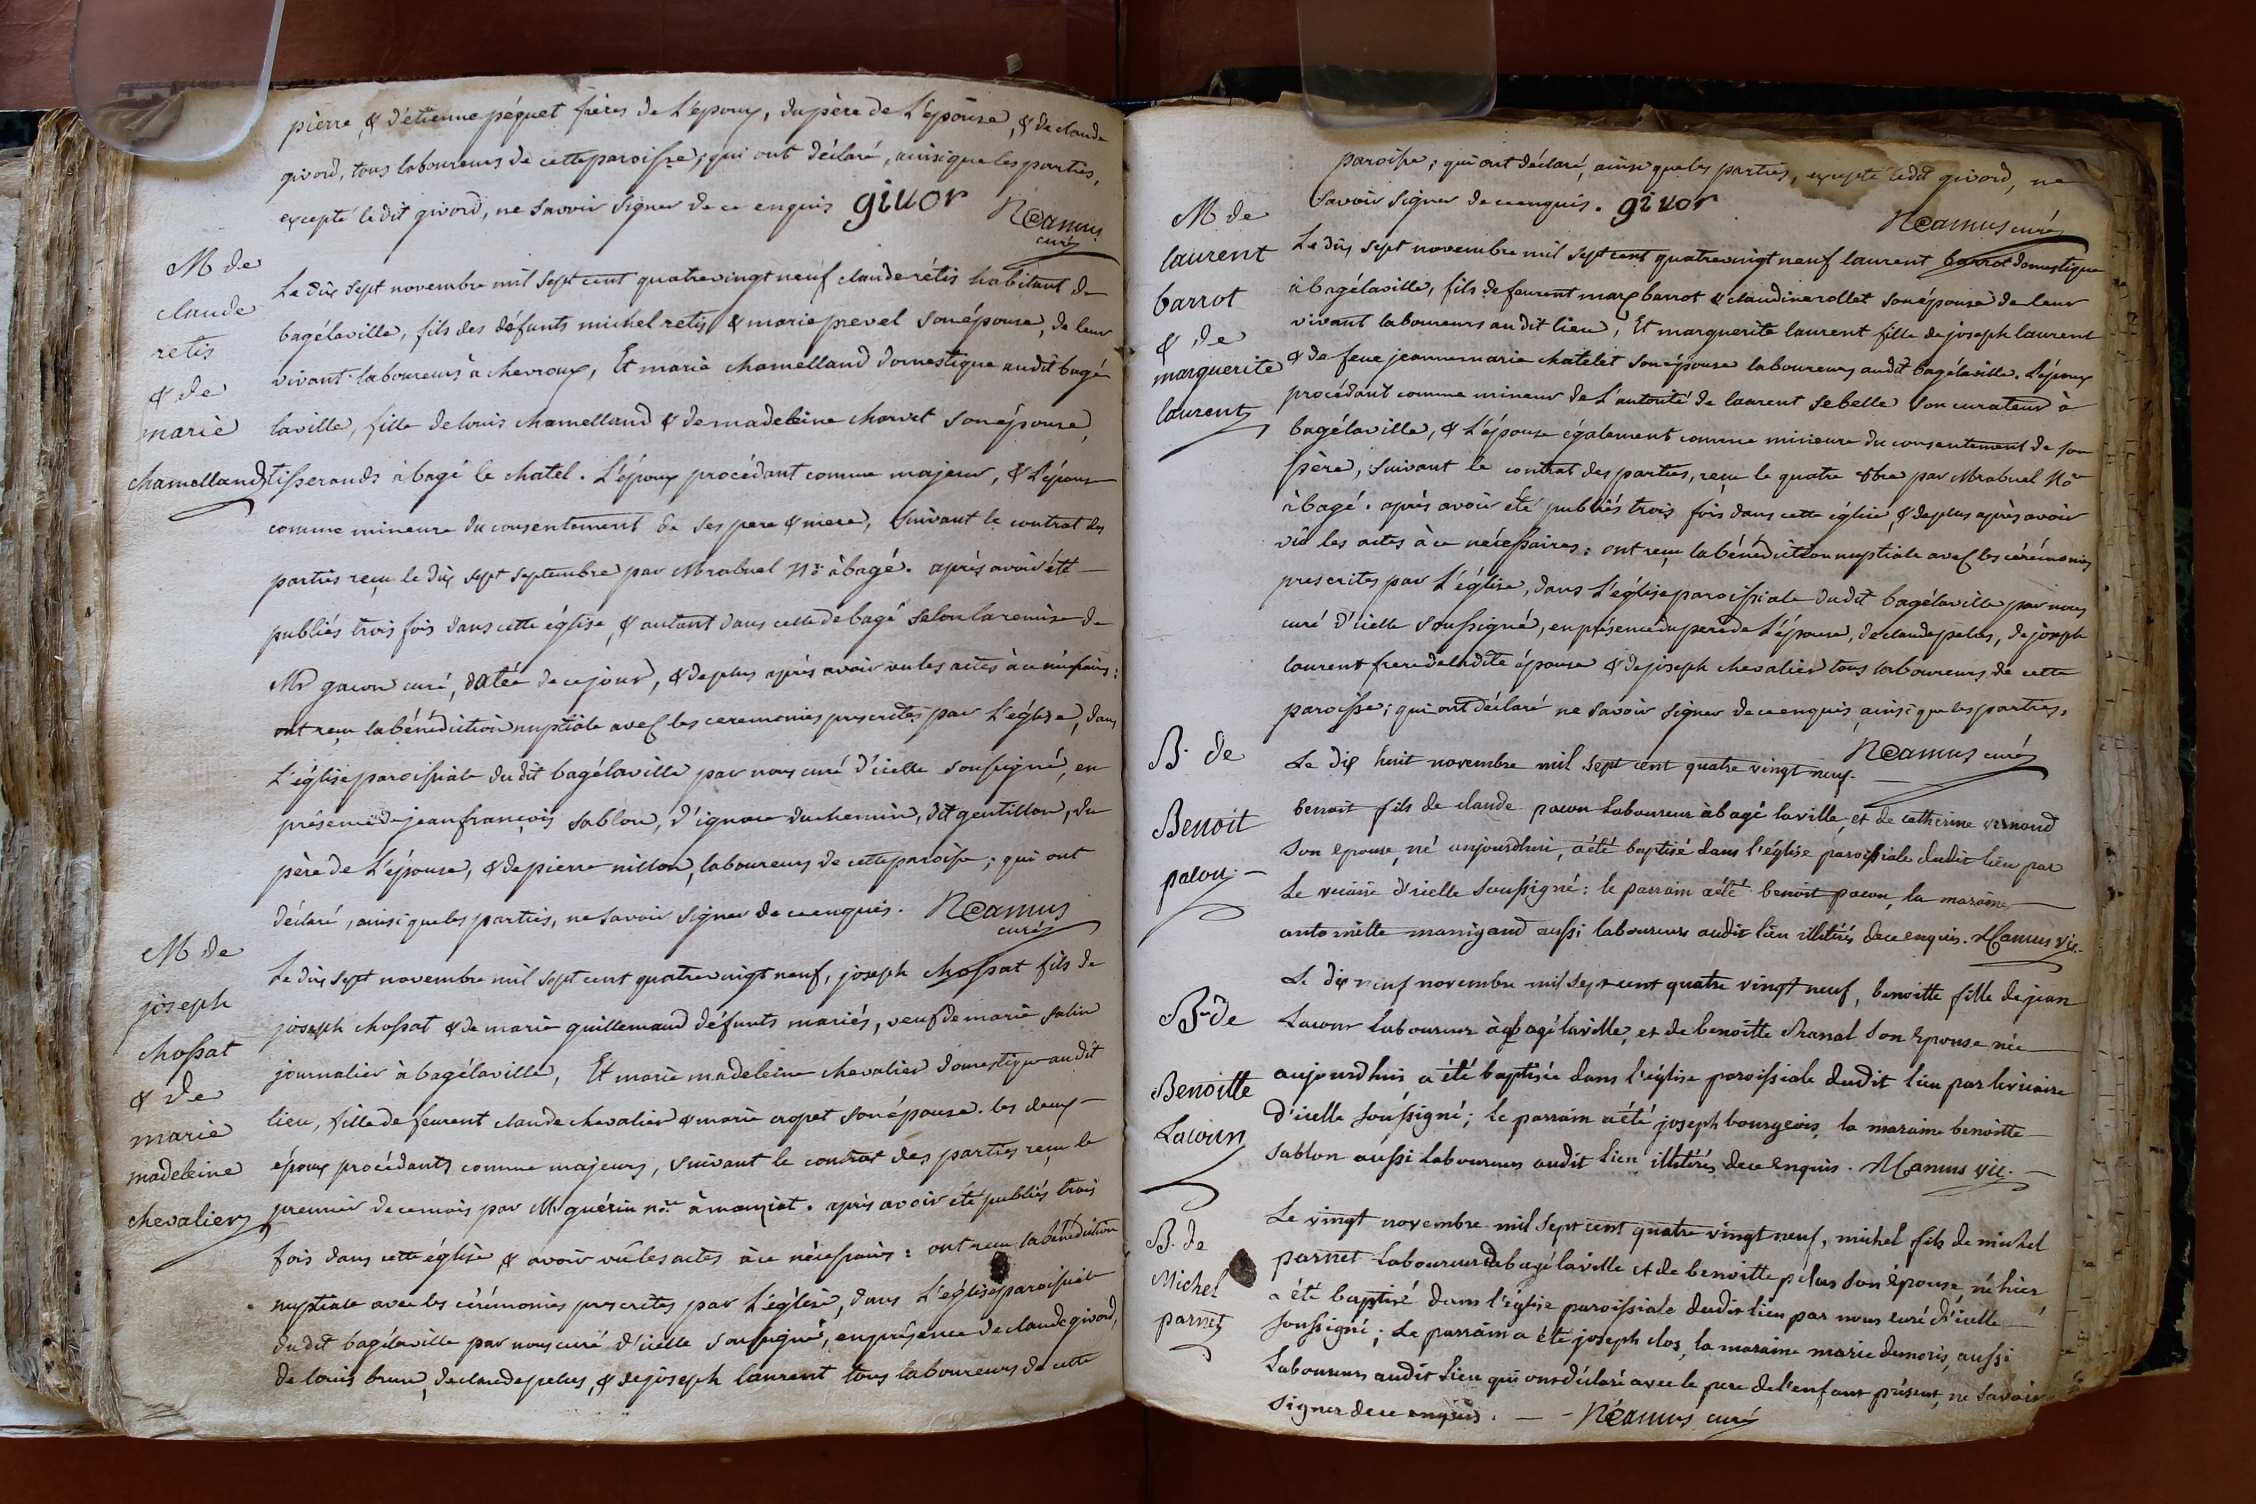 pierre, & d'étienne péquet frères de L'époux, du père de L'épouse, & de claude
givord, tous laboureurs de cette paroisse; qui ont déclaré, ainsi que les parties,
excepté le dit givord, ne savoir signer de ce enquis givor Néamus
curé
M de
claude
retis
& de
marie
chamelland
Le dix sept novembre mil sept cent quatrevingt neuf claude rétis habitant de
bagélaville, fils des défunts michel retis & marie prevel son épouse, de leur
vivant laboureurs à chevroux, Et marie chamelland domestique audit bagé
laville, fille de louis chamelland & de madeleine charvet son épouse,
tisserands à bagé le chatel. L'époux procédant comme majeur, & L'épouse
comme mineure du consentement de ses pere & mere, suivant le contrat des
parties reçu le dix sept septembre par Mrabuel Nre à bagé. après avoir été
publiés trois fois dans cette église, & autant dans celle de bagé selon la remise de
Mr gacon curé, datée de ce jour, & de plus après avoir vu les actes à ce nécessaires:
ont reçu la bénédiction nuptiale avec les ceremonies prescrites par L'église, dans
L'église paroissiale du dit bagélaville par nous curé d'icelle soussigné, en
présence de jean françois sablon, d'ignace duchemin, dit gentillon, du
père de L'épouse, & de pierre nillon, laboureurs de cette paroisse; qui ont
déclaré, ainsi que les parties, ne savoir signer de ce enquis. Néamus
curé
M de
joseph
chossat
& de
marie
madeleine
chevalier
Le dix sept novembre mil sept cent quatrevingt neuf, joseph chossat fils de
joseph chossat & de marie guillemaud défunts mariés, veuf de marie salin
journalier à bagélaville, Et marie madeleine chevalier domestique audit
lieu, fille de feurent claude chevalier & marie cropet son épouse. les deux
époux procédants comme majeurs, suivant le contrat des parties reçu le
premier de ce mois par Mr guérin nre à manziat. après avoir été publiés trois
fois dans cette église & avoir vû les actes à ce nécessaires: ont reçu la bénédiction
nuptiale avec les cérémonies prescrites par L'église, dans L'église paroissiale
du dit bagélaville par nous curé d'icelle soussigné, en présence de claude givord,
de louis brun, de claude pelus, & de joseph laurent tous laboureurs de cette
paroisse; qui ont déclaré, ainsi que les parties, excepté ledit givord, ne
savoir signer de ce enquis. givor
Néamus curé
M de
laurent
barrot
& de
marguerite
laurent
Le dix sept novembre mil sept cent quatrevingt neuf laurent barrot domestique
à bagélaville, fils de feurent marc barrot & claudine rollet son épouse de leur
vivant laboureurs au dit lieu, Et marguerite laurent fille de joseph laurent
& de feue jeanne marie chatelet son épouse laboureurs audit bagélaville. L'époux
procédant comme mineur de L'autorité de laurent sebelle son curateur à
bagélaville, & L'épouse également comme mineure du consentement de son
père, suivant le contrat des parties, reçu le quatre 8bre par Mrabuel Nre
à bagé. après avoir été publiés trois fois dans cette église, & de plus après avoir
vû les actes à ce nécessaires: ont reçu la bénédiction nuptiale avec les cérémonies
prescrites par L'église, dans L'église paroissiale du dit bagélaville par nous
curé d'icelle soussigné, en présence du pere de L'épouse, de claude pelus, de joseph
laurent frere de ladite épouse & de joseph chevalier tous laboureurs de cette
paroisse; qui ont déclaré ne savoir signer de ce enquis ainsi que les parties.
Néamus curé
B. de
Benoit
pacou
Le dix huit novembre mil sept cent quatre vingt neuf
benoit fils de claude pacou laboureur à bagé laville, et de catherine
son epouse, né aujourdhui, a été baptisé dans l'église paroissiale dudit lieu par
le vicaire d'icelle soussigné: le parrain a été benoit pacou, la maraine
antoinette manigand aussi laboureurs audit lieu illitérés de ce enquis. Mamus vic.
B. de
Benoitte
Lacour
Le dix neuf novembre mil sept cent quatre vingt neuf, benoitte fille de jean
Lacour laboureur à bagé laville, et de benoitte son Epouse née
aujourdhui a été baptisée dans l'église paroissiale dudit lieu par le vicaire
d'icelle soussigné; le parrain a été joseph bourgeois, la maraine benoitte
sablon aussi laboureurs audit lieu illitérés de ce enquis. Mamus vic.
B. de
Michel
parnet
Le vingt novembre mil sept cent quatre vingt neuf, michel fils de michel
parnet laboureur à bagé laville et de benoitte pelus son épouse, né hier
a été baptisé dans l'église paroissiale dudit lieu par nous curé d'icelle
soussigné; Le parrain a été joseph clos, la maraine marie demoris, aussi
laboureurs audit lieu qui ont déclaré avec le pere de l'enfant présent, ne savoir
signer de ce enquis. Néamus curé